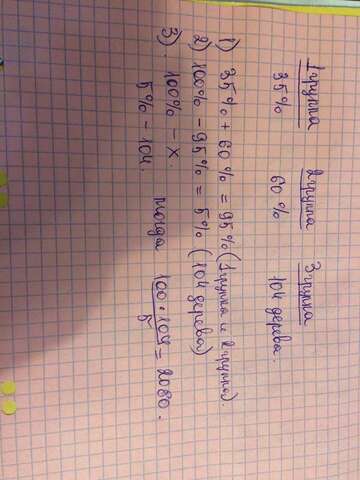 1 группа 2 группа 3 группа
35% 60% 104 дерева.
1) 35% + 60% = 95% (1 группа и 2 группа).
2) 100% - 95% = 5% (104 дерева)
3) 100% - x.
5% - 104 тогда 100 · 104 / 5 = 2080.